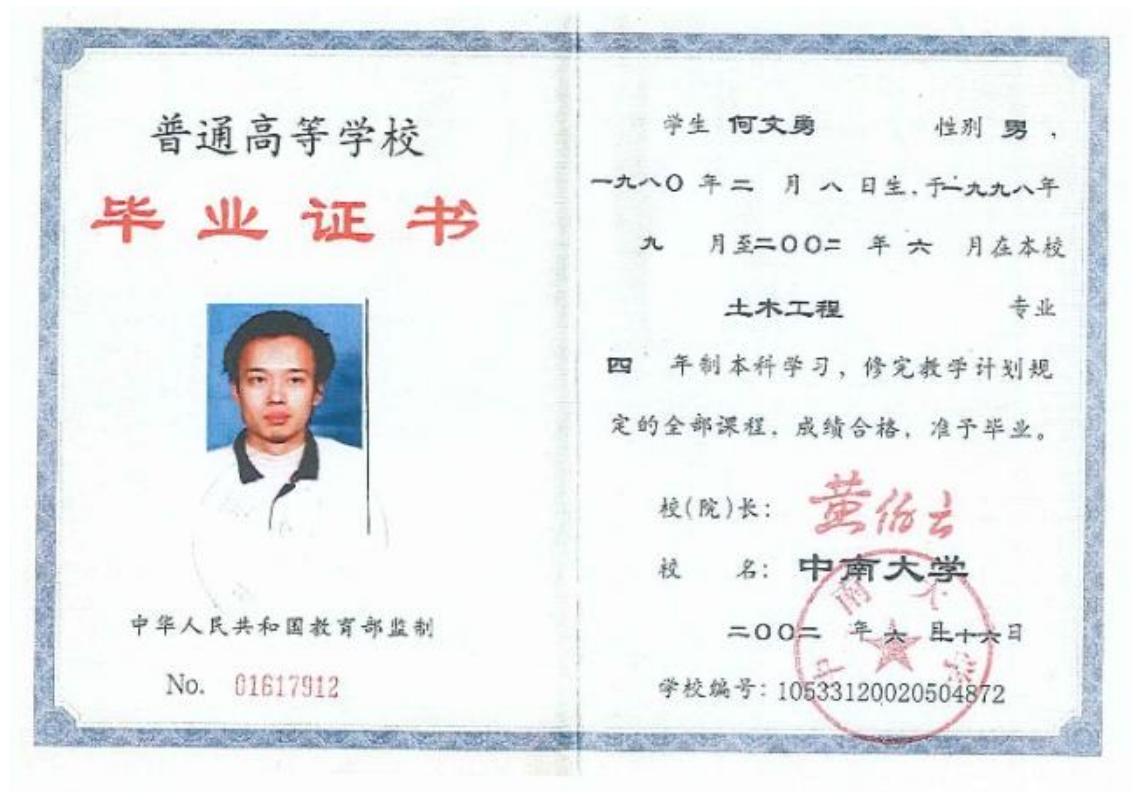 普通高等学校
毕业证书
中华人民共和国教育部监制
No. 01617912
学生 何文勇 性别 男，
一九八〇年二月八日生，于一九九八年
九月至二〇〇二年六月在本校
土木工程 专业
四年制本科学习，修完教学计划规
定的全部课程，成绩合格，准予毕业。
校(院)长：黄伯云
校名：中南大学
二〇〇二年六月十六日
学校编号：10533120020504872
中南大学